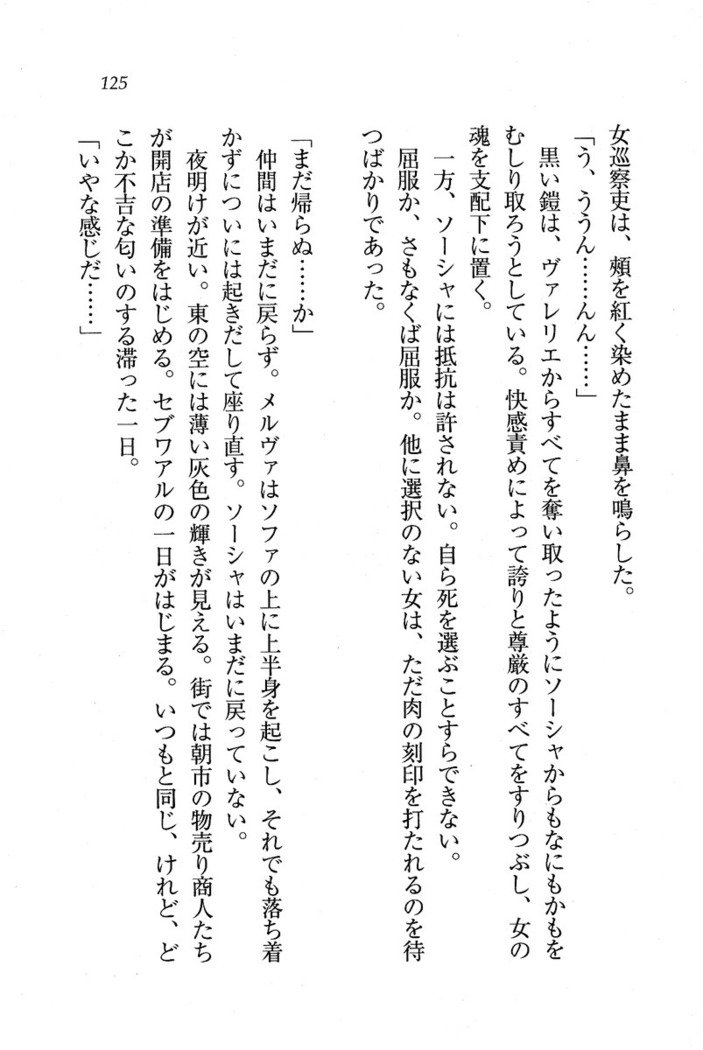 125
女巡察吏は、頬を紅く染めたまま鼻を鳴らした。
「う、ううん……んん……」
黒い鎧は、ヴァレリエからすべてを奪い取ったようにソーシャからもなにもかもを
むしり取ろうとしている。快感責めによって誇りと尊厳のすべてをすりつぶし、女の
魂を支配下に置く。
一方、ソーシャには抵抗は許されない。自ら死を選ぶことすらできない。
屈服か、さもなくば屈服か。他に選択のない女は、ただ肉の刻印を打たれるのを待
つばかりであった。
「まだ帰らぬ……か」
仲間はいまだに戻らず。メルヴァはソファの上に上半身を起こし、それでも落ち着
かずについには起きだして座り直す。ソーシャはいまだに戻っていない。
夜明けが近い。東の空には薄い灰色の輝きが見える。街では朝市の物売り商人たち
が開店の準備をはじめる。セブワアルの一日がはじまる。いつもと同じ、けれど、ど
こか不吉な匂いのする滞った一日。
「いやな感じだ……」